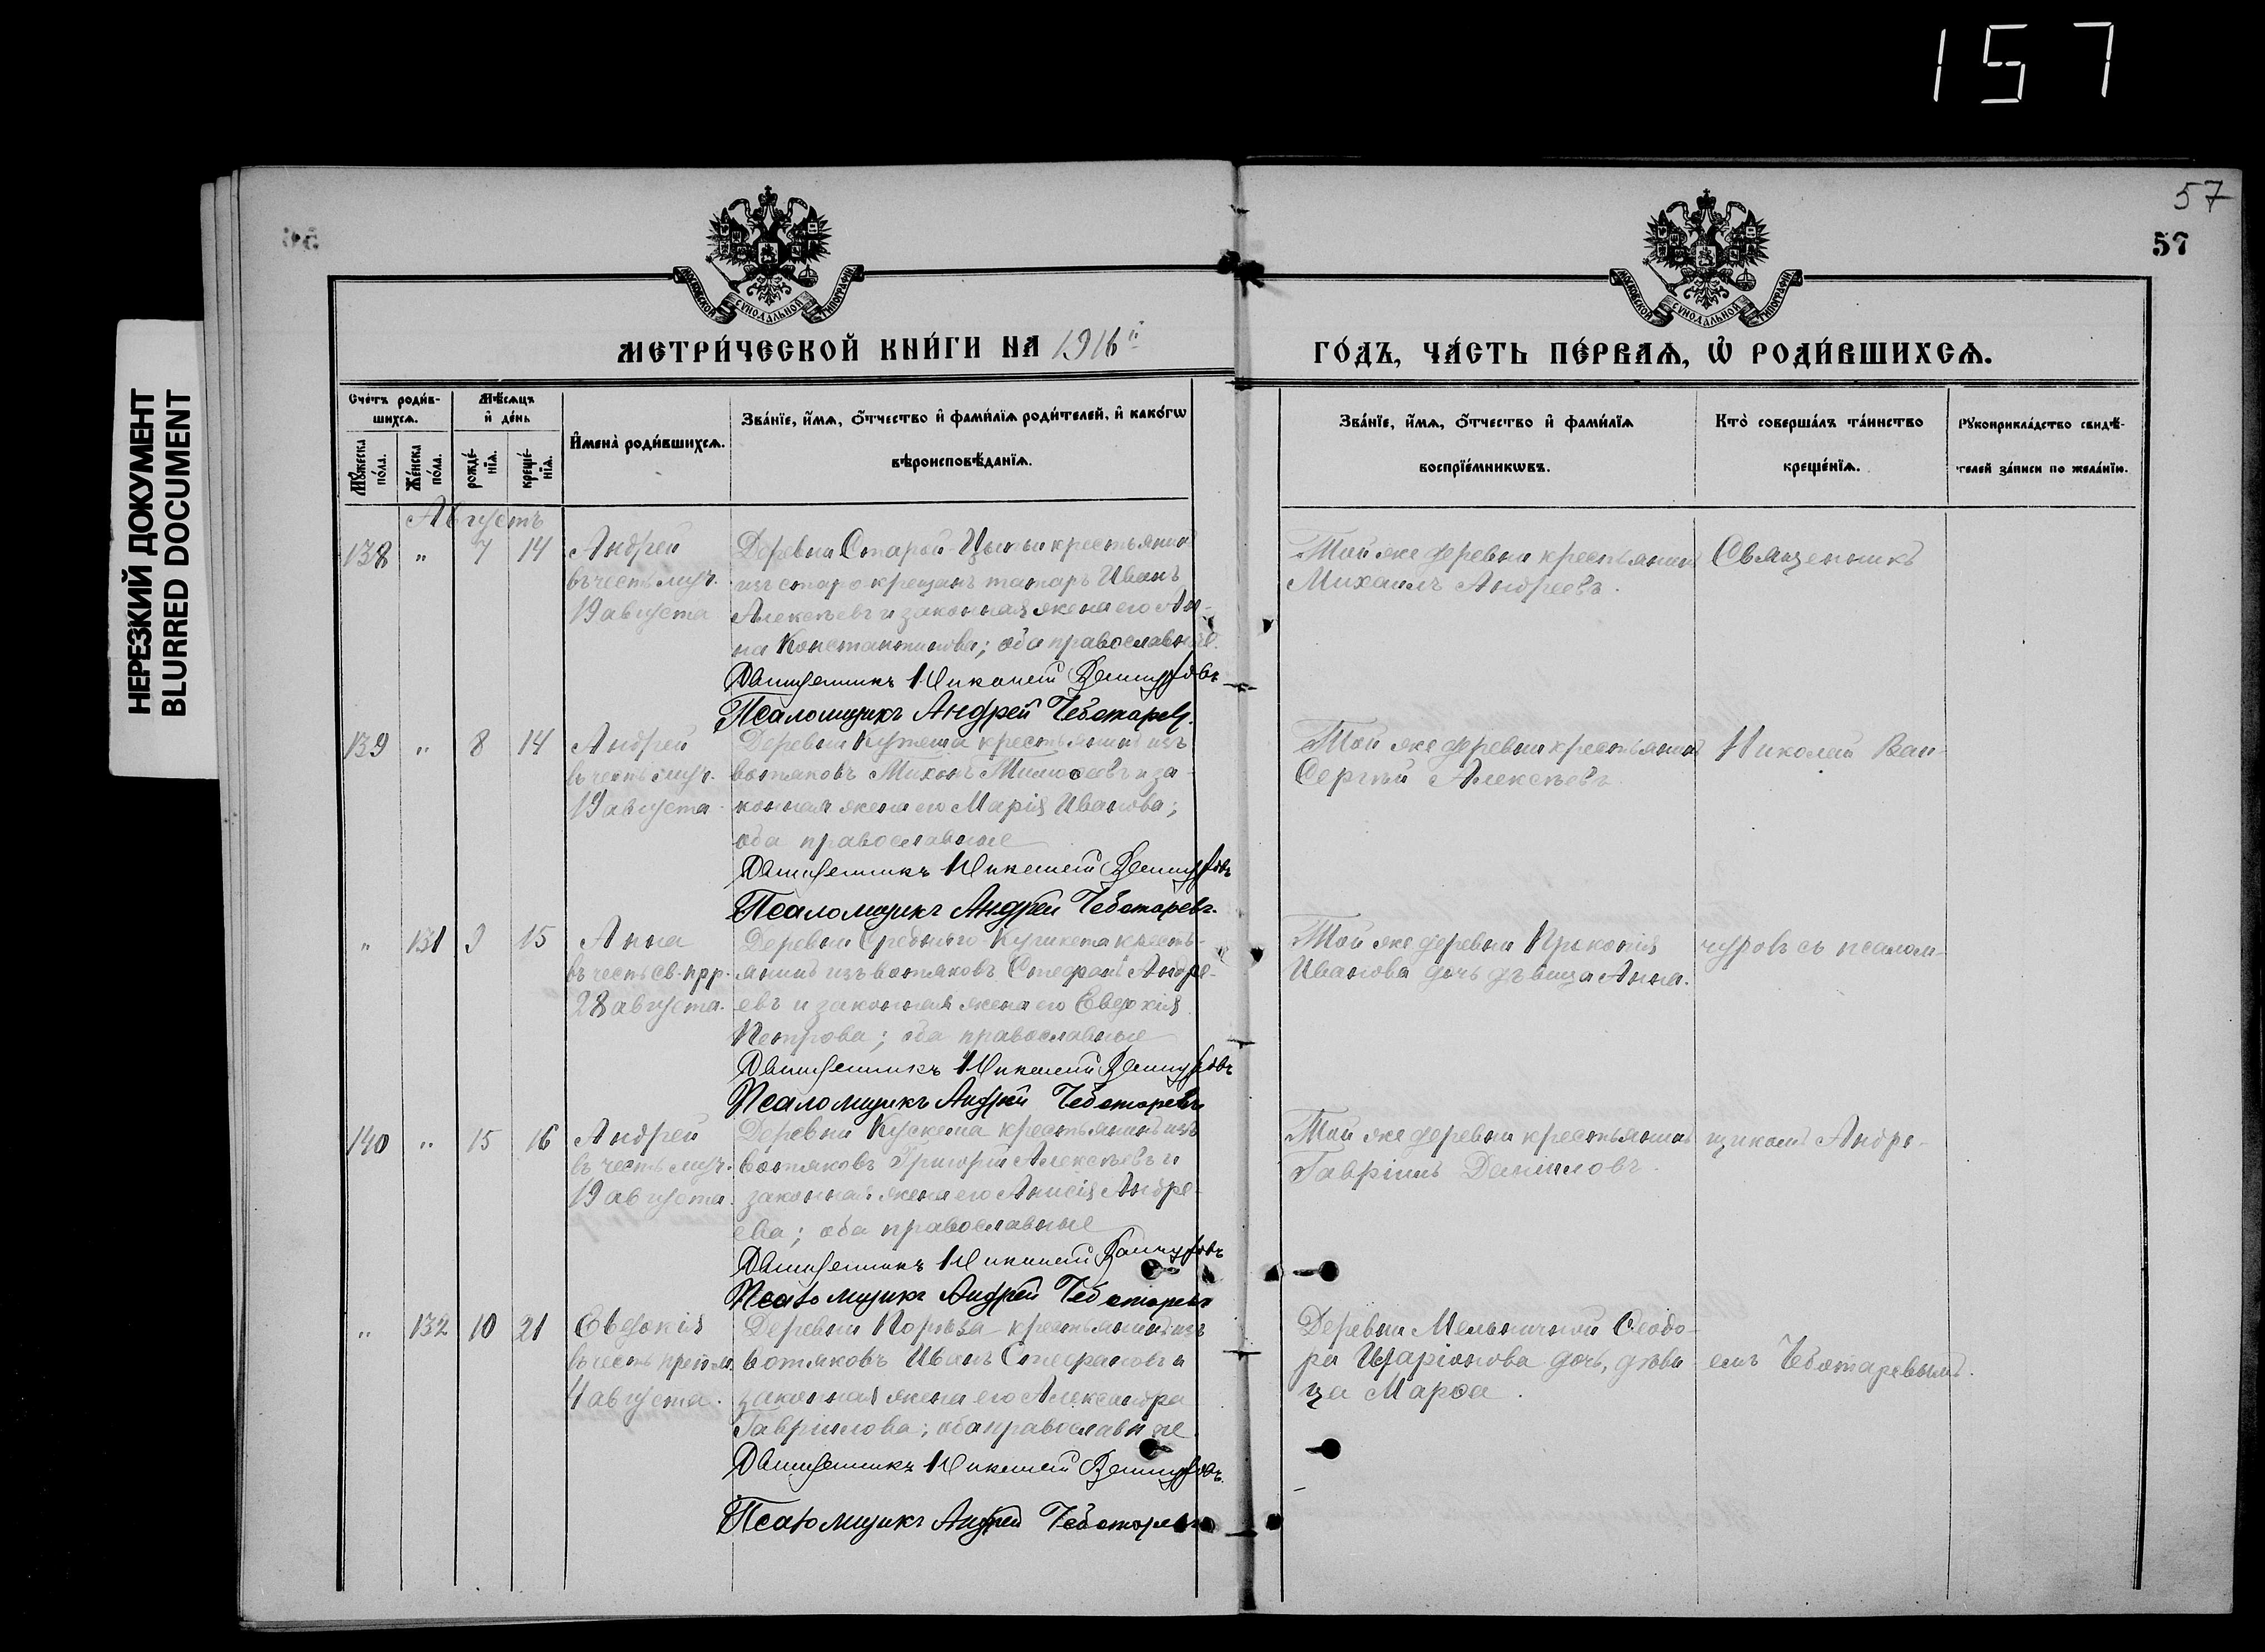 157
НЕРЕЗКИЙ ДОКУМЕНТ
BLURRED DOCUMENT
57
57
МОСКОВСКОЙ СѴНОДАЛЬНОЙ ТИПОГРАФІИ
МОСКОВСКОЙ СѴНОДАЛЬНОЙ ТИПОГРАФІИ
МЕТРИ́ЧЕСКОЙ КНИ́ГИ НА 1916й
ГО́ДЪ, ЧА́СТЬ ПЕ́РВАѦ, Ѡ҆ РОДИ́ВШИХСѦ.
Сче́тъ роди́в-
шихсѧ.
Мѣ́сѧцъ
и҆ де́нь
Мꙋ́жеска по́ла.
Же́нска по́ла.
рожде́-
нїѧ.
креще́-
нїѧ.
И҆мена̀ роди́вшихсѧ.
Зва́нїе, и҆́мѧ, ѻ҆́тчество и҆ фами́лїѧ роди́телей, и҆ како́гѡ
вѣроисповѣ́данїѧ.
Зва́нїе, и҆́мѧ, ѻ҆́тчество и҆ фами́лїѧ
воспрїе́мникѡвъ.
Кто̀ соверша́лъ та́инство
креще́нїѧ.
Рꙋкоприкла́дство свидѣ́-
телей за́писи по жела́нїю.
Августъ
138 " 7 14 Андрей
въ честь муч.
19 августа
Деревни Старой-Цыпьи крестьянинъ
изъ старо-крещенъ татаръ Иванъ
Алексѣевъ и законная жена его Ан-
на Константинова; оба православные.
Священникъ Николай Ванчуровъ
Псаломщикъ Андрей Чеботаревъ.
Той же деревни крестьянинъ
Михаилъ Андреевъ.
Священникъ
139 " 8 14 Андрей
въ честь муч.
19 августа.
Деревни крестьянинъ изъ
вотяковъ и за-
конная жена его Марія Иванова;
оба православные
Священникъ Николай Ванчуровъ
Псаломщикъ Андрей Чеботаревъ.
Той же деревни крестьянинъ
Сергѣй Алексѣевъ
Николай Ван-
" 131 9 15 Анна
въ честь св. прр.
28 августа.
Деревни Средняго- кресть-
янинъ изъ вотяковъ Стефанъ Андре-
евъ и законная жена его Евдокія
Петрова; оба православные
Священникъ Николай Ванчуровъ
Псаломщикъ Андрей Чеботаревъ
Той же деревни
Иванова дочь дѣвица Анна.
чуровъ съ псалом-
140 " 15 16 Андрей
въ честь муч.
19 августа.
Деревни крестьянинъ изъ
вотяковъ Григорій Алексѣевъ и
законная жена его Анисія Андре-
ева; оба православные
Священникъ Николай Ванчуровъ
Псаломщикъ Андрей Чеботаревъ
Той же деревни крестьянинъ
Гавріилъ Даниловъ.
щикомъ Андре-
" 132 10 21 Евдокія
въ честь преп. м.
4 августа.
Деревни крестьянинъ изъ
вотяковъ Иванъ Стефановъ и
законная жена его Александра
Гавріилова; оба православные.
Священникъ Николай Ванчуровъ.
Псаломщикъ Андрей Чеботаревъ
Деревни Мельничной Ѳеодо-
ра Иларіонова дочь, дѣви-
ца Марѳа.
емъ Чеботаревымъ.